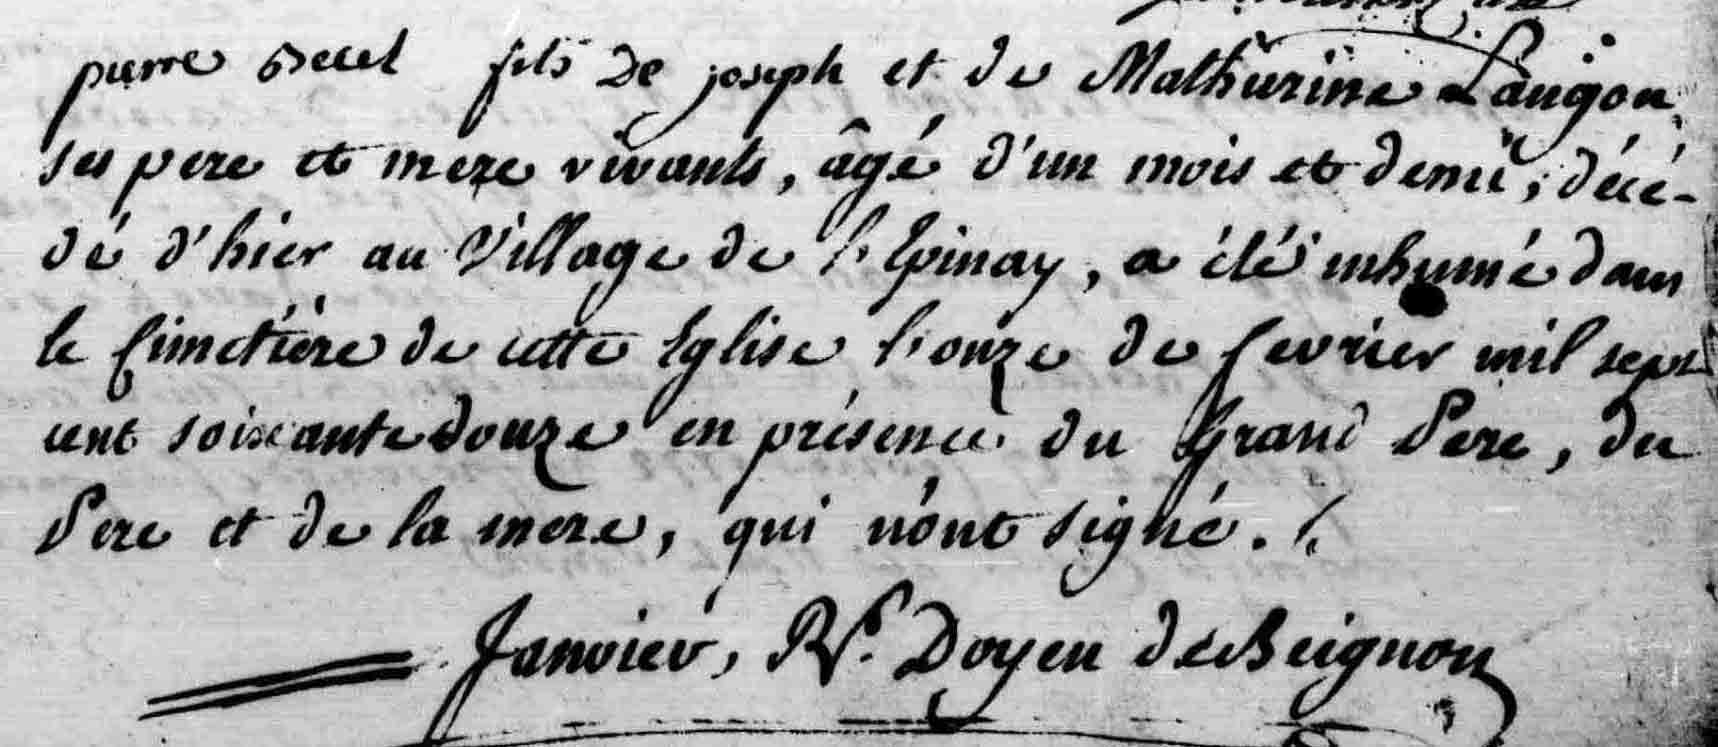 pierre fils de joseph et de Mathurine
ses pere et mere vivants, âgé d'un mois et demi, décé-
dé d'hier au Village de l'Epinay, a été inhumé dans
le Cimetière de cette Eglise l'onze de fevrier mil sept
cent soixante douze en présence du Grand Pere, du
Pere et de la mere, qui n'ont signé ./.
Janvier, Rr. Doyen de Beignon